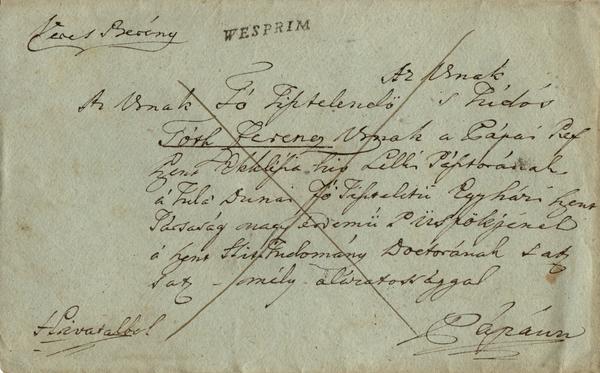 Veres Berény
WESPRIM
Az Urnak
Az Urnak Fő Tiszteletendő s Tudós
Tóth Ferencz Urnak a Pápai Ref
Szent Ekklésia hív Lelki Pásztorának
a Tul a Dunai Fő Tiszteletű Egyházi Szent
Társaság nagy érdemű Püspökjének
a Szent Irás Tudomány Doctorának s at
s at mély alázatossággal
Hivatalbol
Pápánn